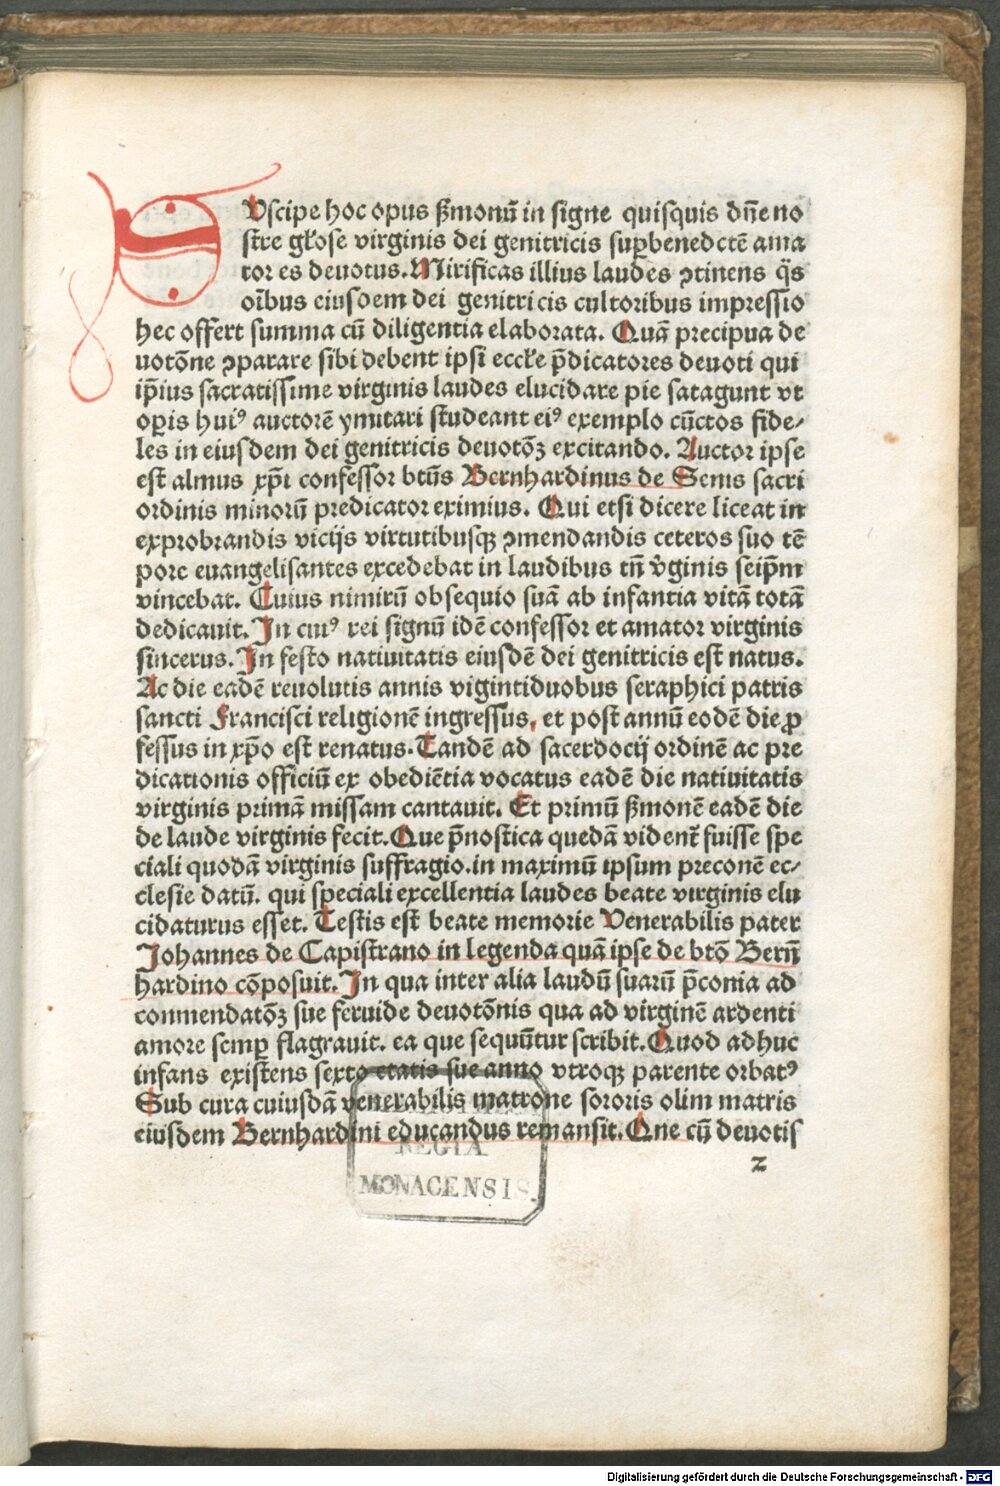 SVscipe hoc opus ẞmonū in signe quisquis dn̄e no
stre glōse virginis dei genitricis suꝑbenedctē ama
tor es deuotus. Mirificas illius laudes ꝯtinens q̄s
oībus eiusdem dei genitricis cultoribus impressio
hec offert summa cū diligentia elaborata. Quā precipua de
uotōne ꝯparare sibi debent ipsi eccłe p̄dicatores deuoti qui
ip̄ius sacratissime virginis laudes elucidare pie satagunt vt
oꝑis huiꝰ auctorē ymitari studeant eiꝰ exemplo cūctos fide⸗
les in eiusdem dei genitricis deuotōꝫ excitando. Auctor ipse
est almus xp̄i confessor btūs Bernhardinus de Senis sacri
ordinis minorū predicator eximius. Qui etsi dicere liceat in
exprobrandis vicijs virtutibusqꝫ ꝯmendandis ceteros suo tē
pore euangelisantes excedebat in laudibus tn̄ v̄ginis seip̄m
vincebat. Cuius nimirū obsequio suā ab infantia vitā totā
dedicauit. In cuiꝰ rei signū idē confessor et amator virginis
sincerus. In festo natiuitatis eiusdē dei genitricis est natus.
Ac die eadē reuolutis annis vigintiduobus seraphici patris
sancti Francisci religionē ingressus, et post annū eodē die ꝓ
fessus in xp̄o est renatus. Tandē ad sacerdocij ordinē ac pre
dicationis officiū ex obediētia vocatus eadē die natiuitatis
virginis primā missam cantauit. Et primū ẞmonē eadē die
de laude virginis fecit. Que p̄nostica quedā vident̄ fuisse spe
ciali quodā virginis suffragio. in maximū ipsum preconē ec⸗
clesie datū. qui speciali excellentia laudes beate virginis elu
cidaturus esset. Testis est beate memorie Venerabilis pater
Johannes de Capistrano in legenda quā ipse de btō Bern̄
hardino cōposuit. In qua inter alia laudū suarū p̄conia ad
conmendatōꝫ sue feruide deuotōnis qua ad virginē ardenti
amore semꝑ flagrauit. ea que sequūtur scribit. Quod adhuc
infans existens sexto etatis sue anno vtroqꝫ parente orbatꝰ
Sub cura cuiusdā venerabilis matrone sororis olim matris
eiusdem Bernhardini educandus remansit. Que cū deuotis
z
REGIA
MONACENSIS.
Digitalisierung gefördert durch die Deutsche Forschungsgemeinschaft - DFG